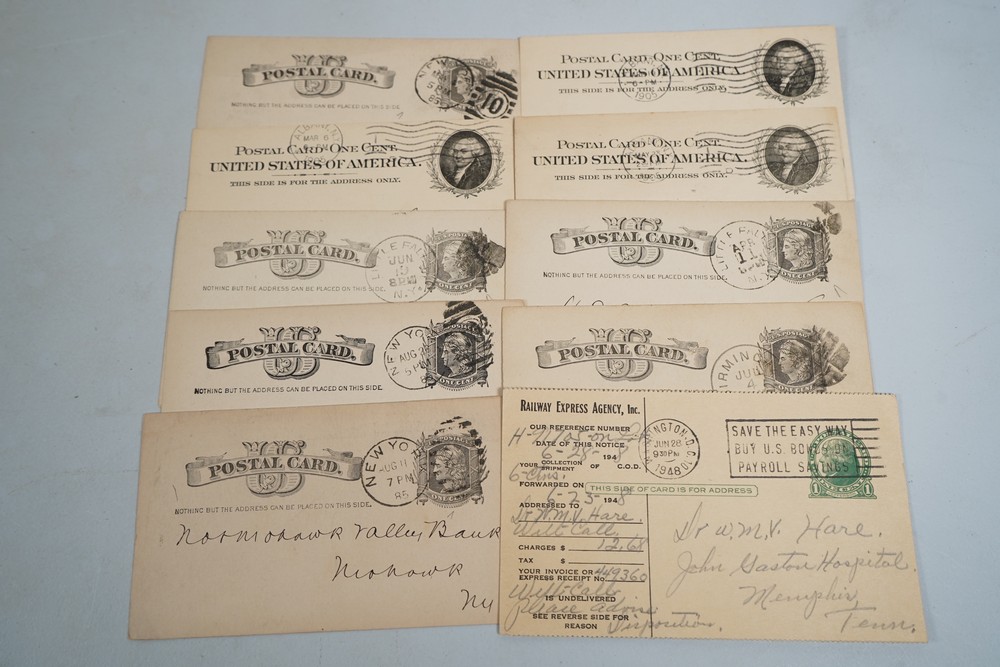 US
POSTAL CARD.
NOTHING BUT THE ADDRESS CAN BE PLACED ON THIS SIDE.
NEW
10
POSTAL CARD-ONE CENT.
UNITED STATES OF AMERICA.
THIS SIDE IS FOR THE ADDRESS ONLY.
1905
MAR 6
POSTAL CARD-ONE CENT.
UNITED STATES OF AMERICA.
THIS SIDE IS FOR THE ADDRESS ONLY.
POSTAL CARD-ONE CENT.
UNITED STATES OF AMERICA.
THIS SIDE IS FOR THE ADDRESS ONLY.
US
POSTAL CARD.
NOTHING BUT THE ADDRESS CAN BE PLACED ON THIS SIDE.
LITTLE FALLS
JUN
8PM
N.Y.
ONE CENT
US
POSTAL CARD.
NOTHING BUT THE ADDRESS CAN BE PLACED ON THIS SIDE.
LITTLE FALLS
APR
11
6PM
N.Y.
ONE CENT
US
POSTAL CARD.
NOTHING BUT THE ADDRESS CAN BE PLACED ON THIS SIDE.
NEW YO
AUG
5 PM
POSTAGE
ONE CENT
US
POSTAL CARD.
NOTHING BUT THE ADDRESS CAN BE PLACED ON THIS SIDE.
IRMING
4
US
POSTAL CARD.
NOTHING BUT THE ADDRESS CAN BE PLACED ON THIS SIDE.
NEW YO
AUG 11
7 PM
85
Nor Mohawk Valley Bank
Mohawk
NY
RAILWAY EXPRESS AGENCY, Inc.
OUR REFERENCE NUMBER
DATE OF THIS NOTICE
6-28-1948
YOUR COLLECTION SHIPMENT OF C.O.D.
6-Ctns.
FORWARDED ON
6-23-1948
ADDRESSED TO
Dr W.M.V. Hare.
Will Call
CHARGES $ 12.68
TAX $
YOUR INVOICE OR
EXPRESS RECEIPT No. 449360
Will Call
IS UNDELIVERED
please advise
SEE REVERSE SIDE FOR
REASON disposition.
INGTON, D.C.
JUN 28
930PM
1948
SAVE THE EASY WAY
BUY U.S. BONDS ON
PAYROLL SAVINGS
THIS SIDE OF CARD IS FOR ADDRESS
1
1
Dr W.M.V. Hare.
John Gaston Hospital.
Memphis,
Tenn.